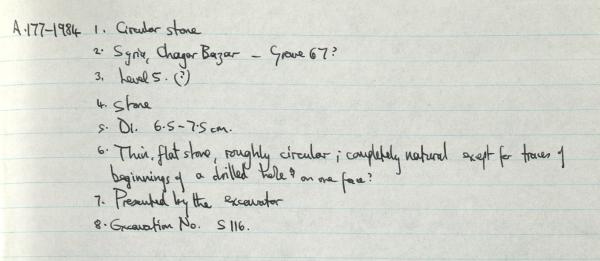 A.177-1984 1. Circular stone
2. Syria, Chagar Bazar - Grave 67?
3. Level 5. (?)
4. Stone
5. Di. 6.5-7.5 cm.
6. Thin, flat stone, roughly circular; completely natural except for traces of
beginnings of a drilled hole? on one face?
7. Presented by the excavator
8. Excavation No. S 116.